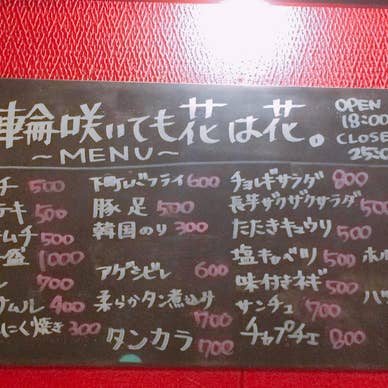 輪咲いても花は花。
～MENU～
OPEN
18:00
CLOSE
チ 500
キ 500
ムチ 500
盛 1000
ル 700
ナムル 400
にく焼き 300
フライ 600
豚足 500
韓国のり 300
アゲシビレ 600
柔らかタン煮込み 700
タンカラ 700
チョレギサラダ 800
長芋ザクザクサラダ 500
たたきキュウリ 500
塩キャベツ 500
味付きネギ 500
サンチュ 700
チャプチェ 800
ホル
ハツ